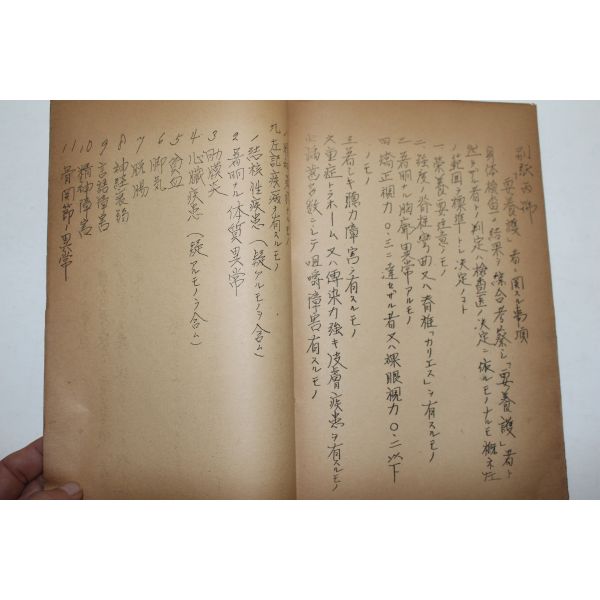 別紙丙号
「要養護」者ニ関スル事項
身体検査ノ結果ヲ綜合考察シ「要養護」者ト
認ムル者ノ判定ハ検査医ノ決定ニ依ルモノナルモ概ネ左
ノ範囲ヲ標準トシ決定ノコト
一、栄養要注意ノモノ
二、強度ノ脊柱弯曲又ハ脊椎「カリエス」ヲ有スルモノ
三、著明ナル胸廓異常アルモノ
四、矯正視力〇.三ニ達セザル者又ハ裸眼視力〇.二以下
ノモノ
五、著シキ聴力障害ヲ有スルモノ
六、重症トラホーム又ハ傳染力強キ皮膚疾患ヲ有スルモノ
齲歯多数ニシテ咀嚼障害有スルモノ
九、左記疾病ヲ有スルモノ
1 結核性疾患(疑アルモノヲ含ム)
2 著明ナル体質異常
3 肋膜炎
4 心臓疾患(疑アルモノヲ含ム)
5 貧血
6 脚気
7 脱腸
8 神経衰弱
9 言語障害
10 精神障害
11 骨関節ノ異常